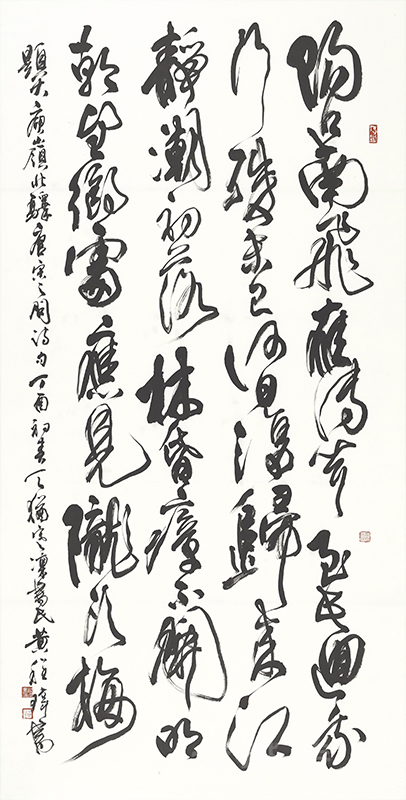 陽月南飛雁傳聞至此迴我
行殊未已何日復歸來江
靜潮初落林昏瘴不開明
朝望鄉處應見隴頭梅
題大庾嶺北驛唐宋之問詩句丁酉初春天猶寒凜民黃瑋書